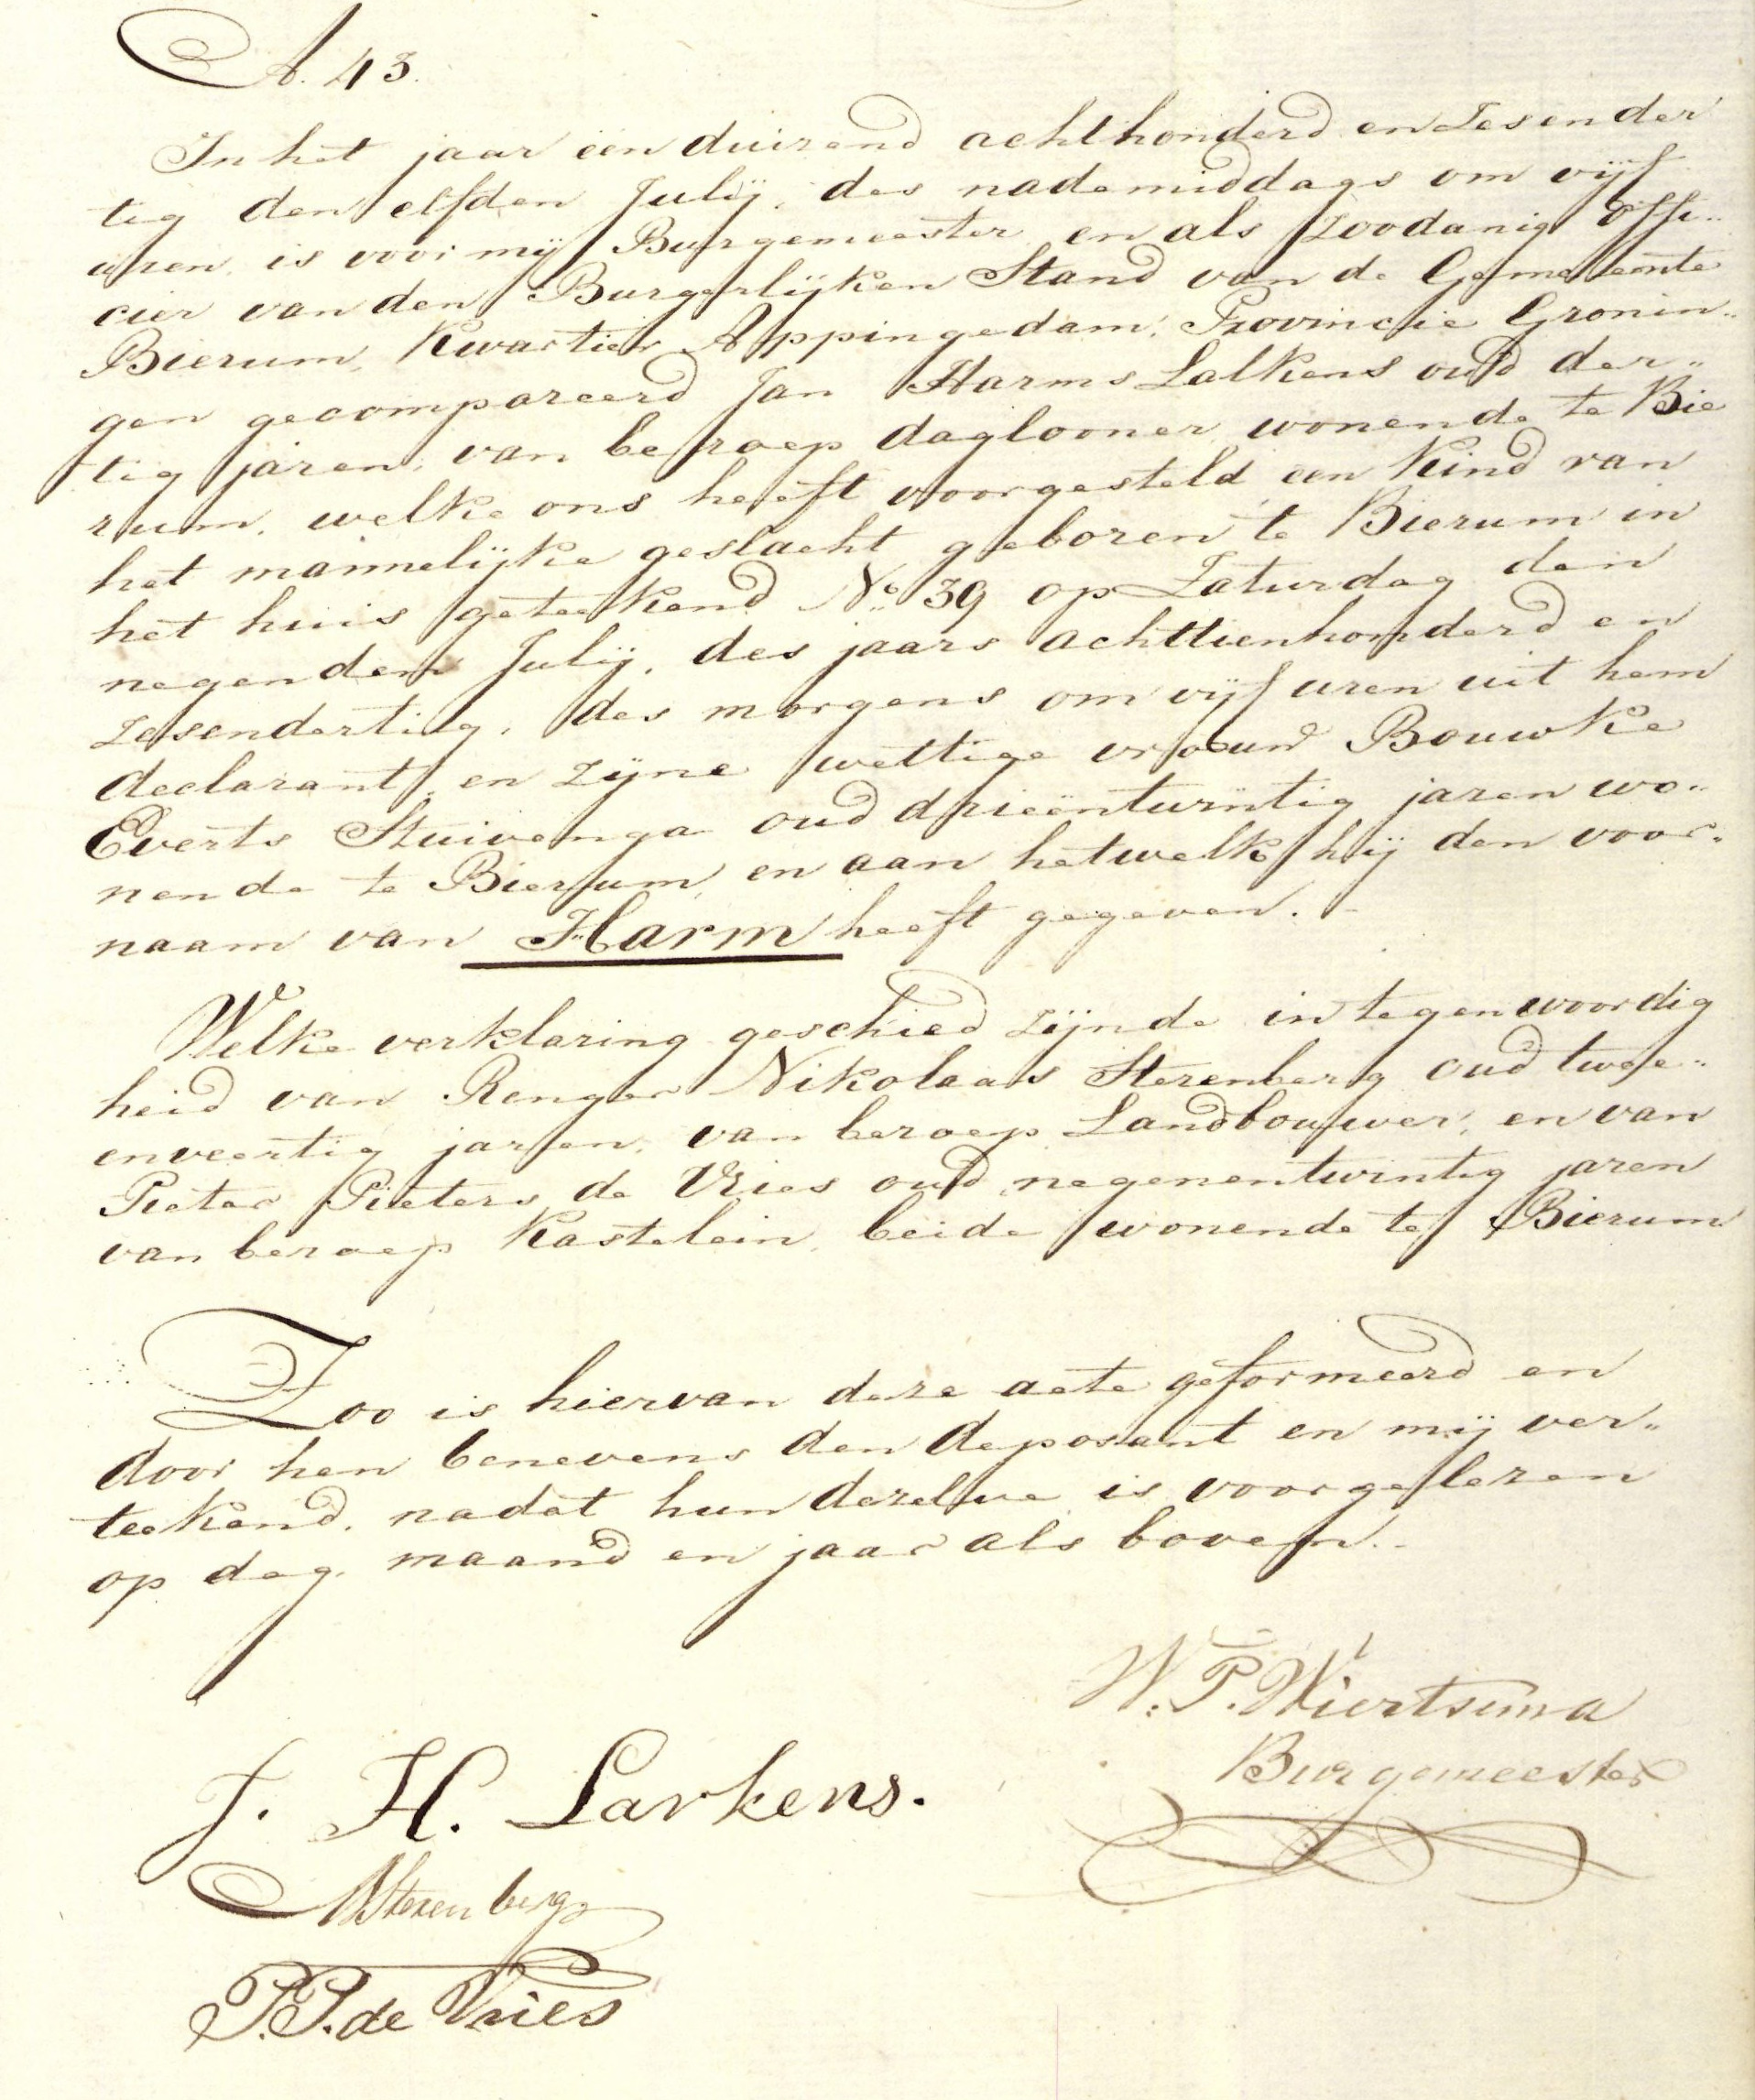 A. 43.
In het jaar een duizend achthonderd en zesender
tig den elfden Julij, des nademiddags om vijf
uren, is voor mij Burgemeester en als zoodanig Offi„
cier van den Burgerlijken Stand van de Gemeente
Bierum, Kwartier Appingedam, Provincie Gronin„
gen gecompareerd Jan Harms Lalkens oud der„
tig jaren, van beroep daglooner, wonende te Bie
rum, welke ons heeft voorgesteld een Kind van
het mannelijke geslacht geboren te Bierum in
het huis geteekend No 39 op Zaturdag den
negenden Julij, des jaars achttienhonderd en
zesendertig, des morgens om vijf uren uit hem
declarant en zijne wettige vrouw Bouwke
Everts Stuivenga oud drieëntwintig jaren wo„
nende te Bierum, en aan hetwelk hij den voor„
naam van Harm heeft gegeven.
Welke verklaring geschied zijnde in tegenwoordig
heid van Renger Nikolaas Sterenberg oud twee„
enveertig jaren, van beroep Landbouwer, en van
Pieter Pieters de Vries oud negenentwintig jaren
van beroep Kastelein, beide wonende te Bierum
Zoo is hiervan deze acte geformeerd en
door hen benevens den deposant en mij ver„
teekend, nadat hun dezelve is voorgelezen
op dag, maand en jaar als boven.
W. P. Wiertsema
Burgemeester
J. H. Larkens.
Sterenberg
P. P. de Vries